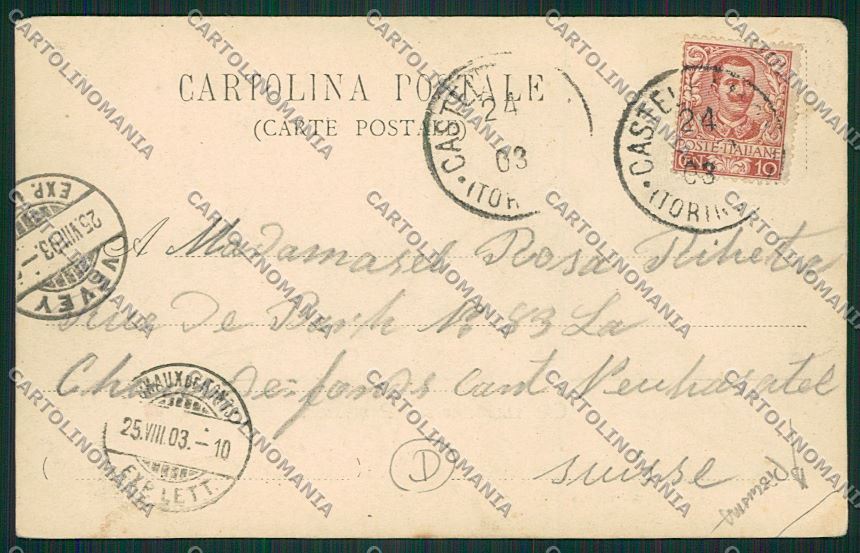 CARTOLINA POSTALE
(CARTE POSTALE)
CASTEL
24
03
(TORINO
CASTEL
24
03
(TORINO
POSTE ITALIANE
10
VEVEY
25.VIII.03.
EXP.
A Madamasel Rosa
Rue De Park N 83 La
Chaux-de-fonds cant Neuhasatel
suisse
CHAUX DE FONDS
25.VIII.03.-10
EXP. LETT.
D
CARTOLINOMANIA